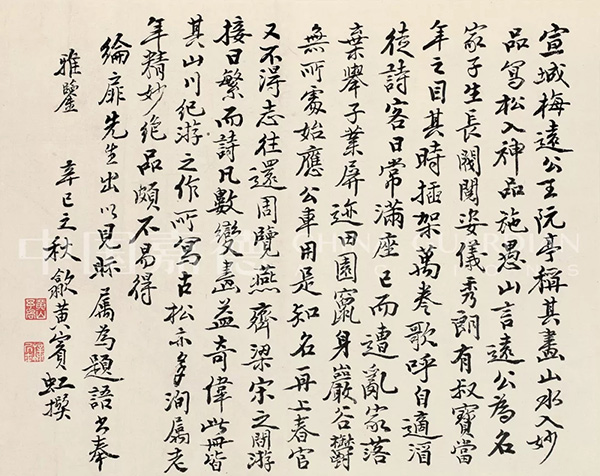 宣城梅遠公王阮亭稱其畫山水入妙
品寫松入神品施愚山言遠公為名
家子生長閥閱姿儀秀朗有叔寶當
年之目其時插架萬卷歌呼自適酒
徒詩客日常滿座已而遭亂家落
棄舉子業屏迹田園竄身巖谷欝
無所寄始應公車用是知名再上春官
又不得志往還周覽燕齊梁宋之間游
接日繁而詩凡數變畫益奇偉此冊皆
其山川紀游之作所寫古松亦多洵屬老
年精妙絶品頗不易得
綸扉先生出以見眎屬為題語書奉
雅鑒 辛巳立秋歙黃賓虹撰
中国嘉德 CHINA GUARDIAN